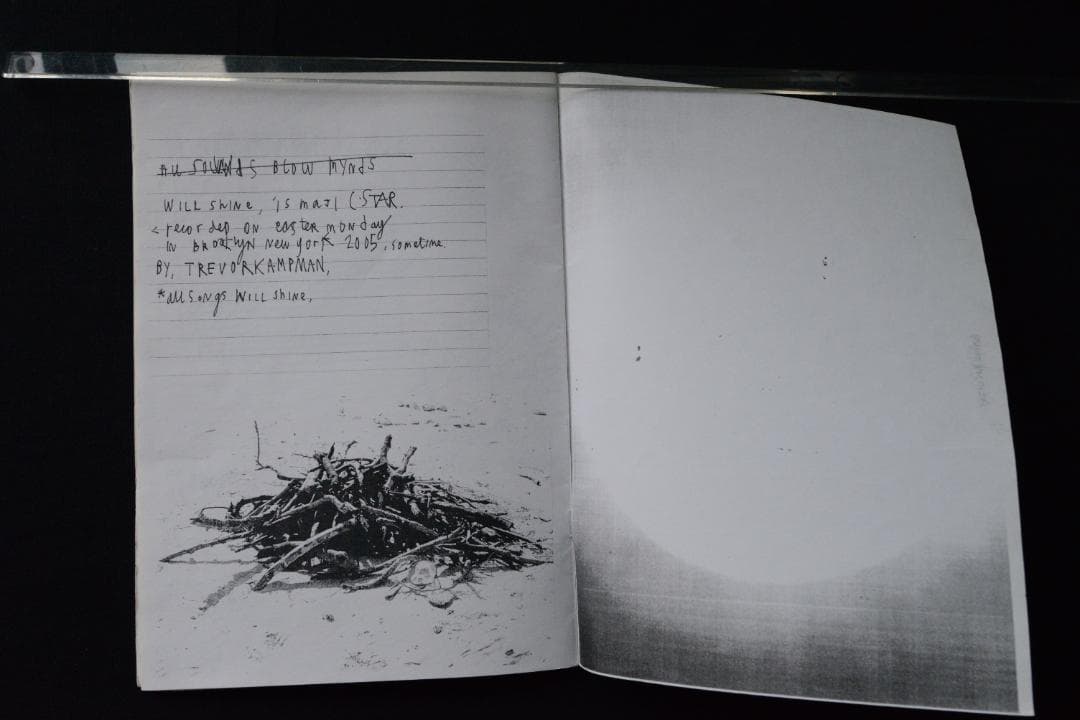 ALL SOUNDS BLOW MYNDS
WILL ShiNe, is maj(STAR.
recorded ON easter mONday
IN BROOKlyN New york 2005, sometime.
BY, TREVORKAMPMAN,
*all songs WILL shine,